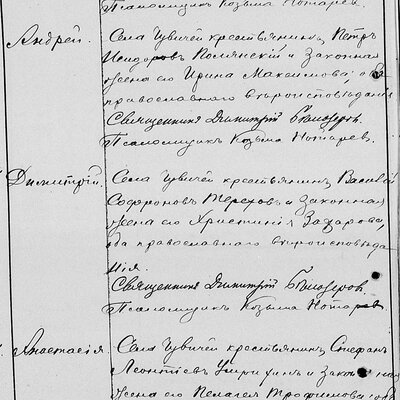 Псаломщикъ Козьма Котаревъ.
Андрей.
Села Чувичей крестьянинъ Петръ
Исидоровъ Полянскій и законная
жена его Ирина Максимова, оба
православнаго вѣроисповѣданія
Священникъ Димитрій Бѣлозеровъ.
Псаломщикъ Козьма Котаревъ.
Димитрій.
Села Чувичей крестьянинъ Василій
Софроновъ Тереховъ и законная
жена его Христинія Захарова,
оба православнаго вѣроисповѣда
нія.
Священникъ Димитрій Бѣлозеровъ
Псаломщикъ Козьма Котаревъ
Анастасія.
Села Чувичей крестьянинъ Стефанъ
Леонтіевъ и законная
жена его Пелагея Трофимова оба